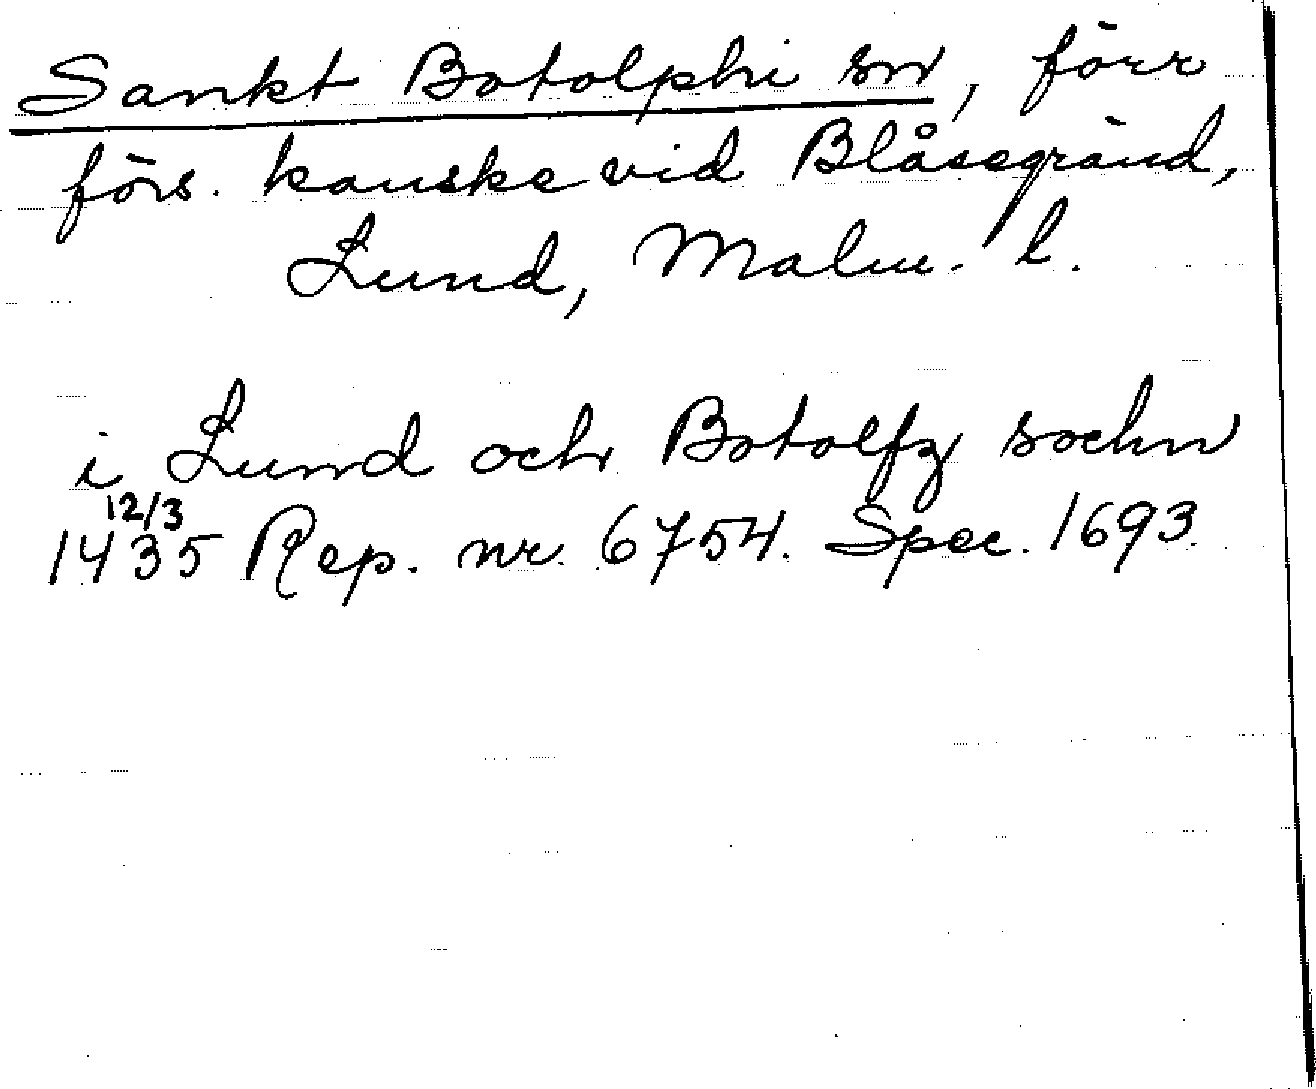 Sankt Botolphi sn, förr
förs. kanske vid Blåsegränd,
Lund, Malm. l.
i Lund och Botolfz sochn
12/3
1435 Rep. nr. 6754. Spec. 1693.